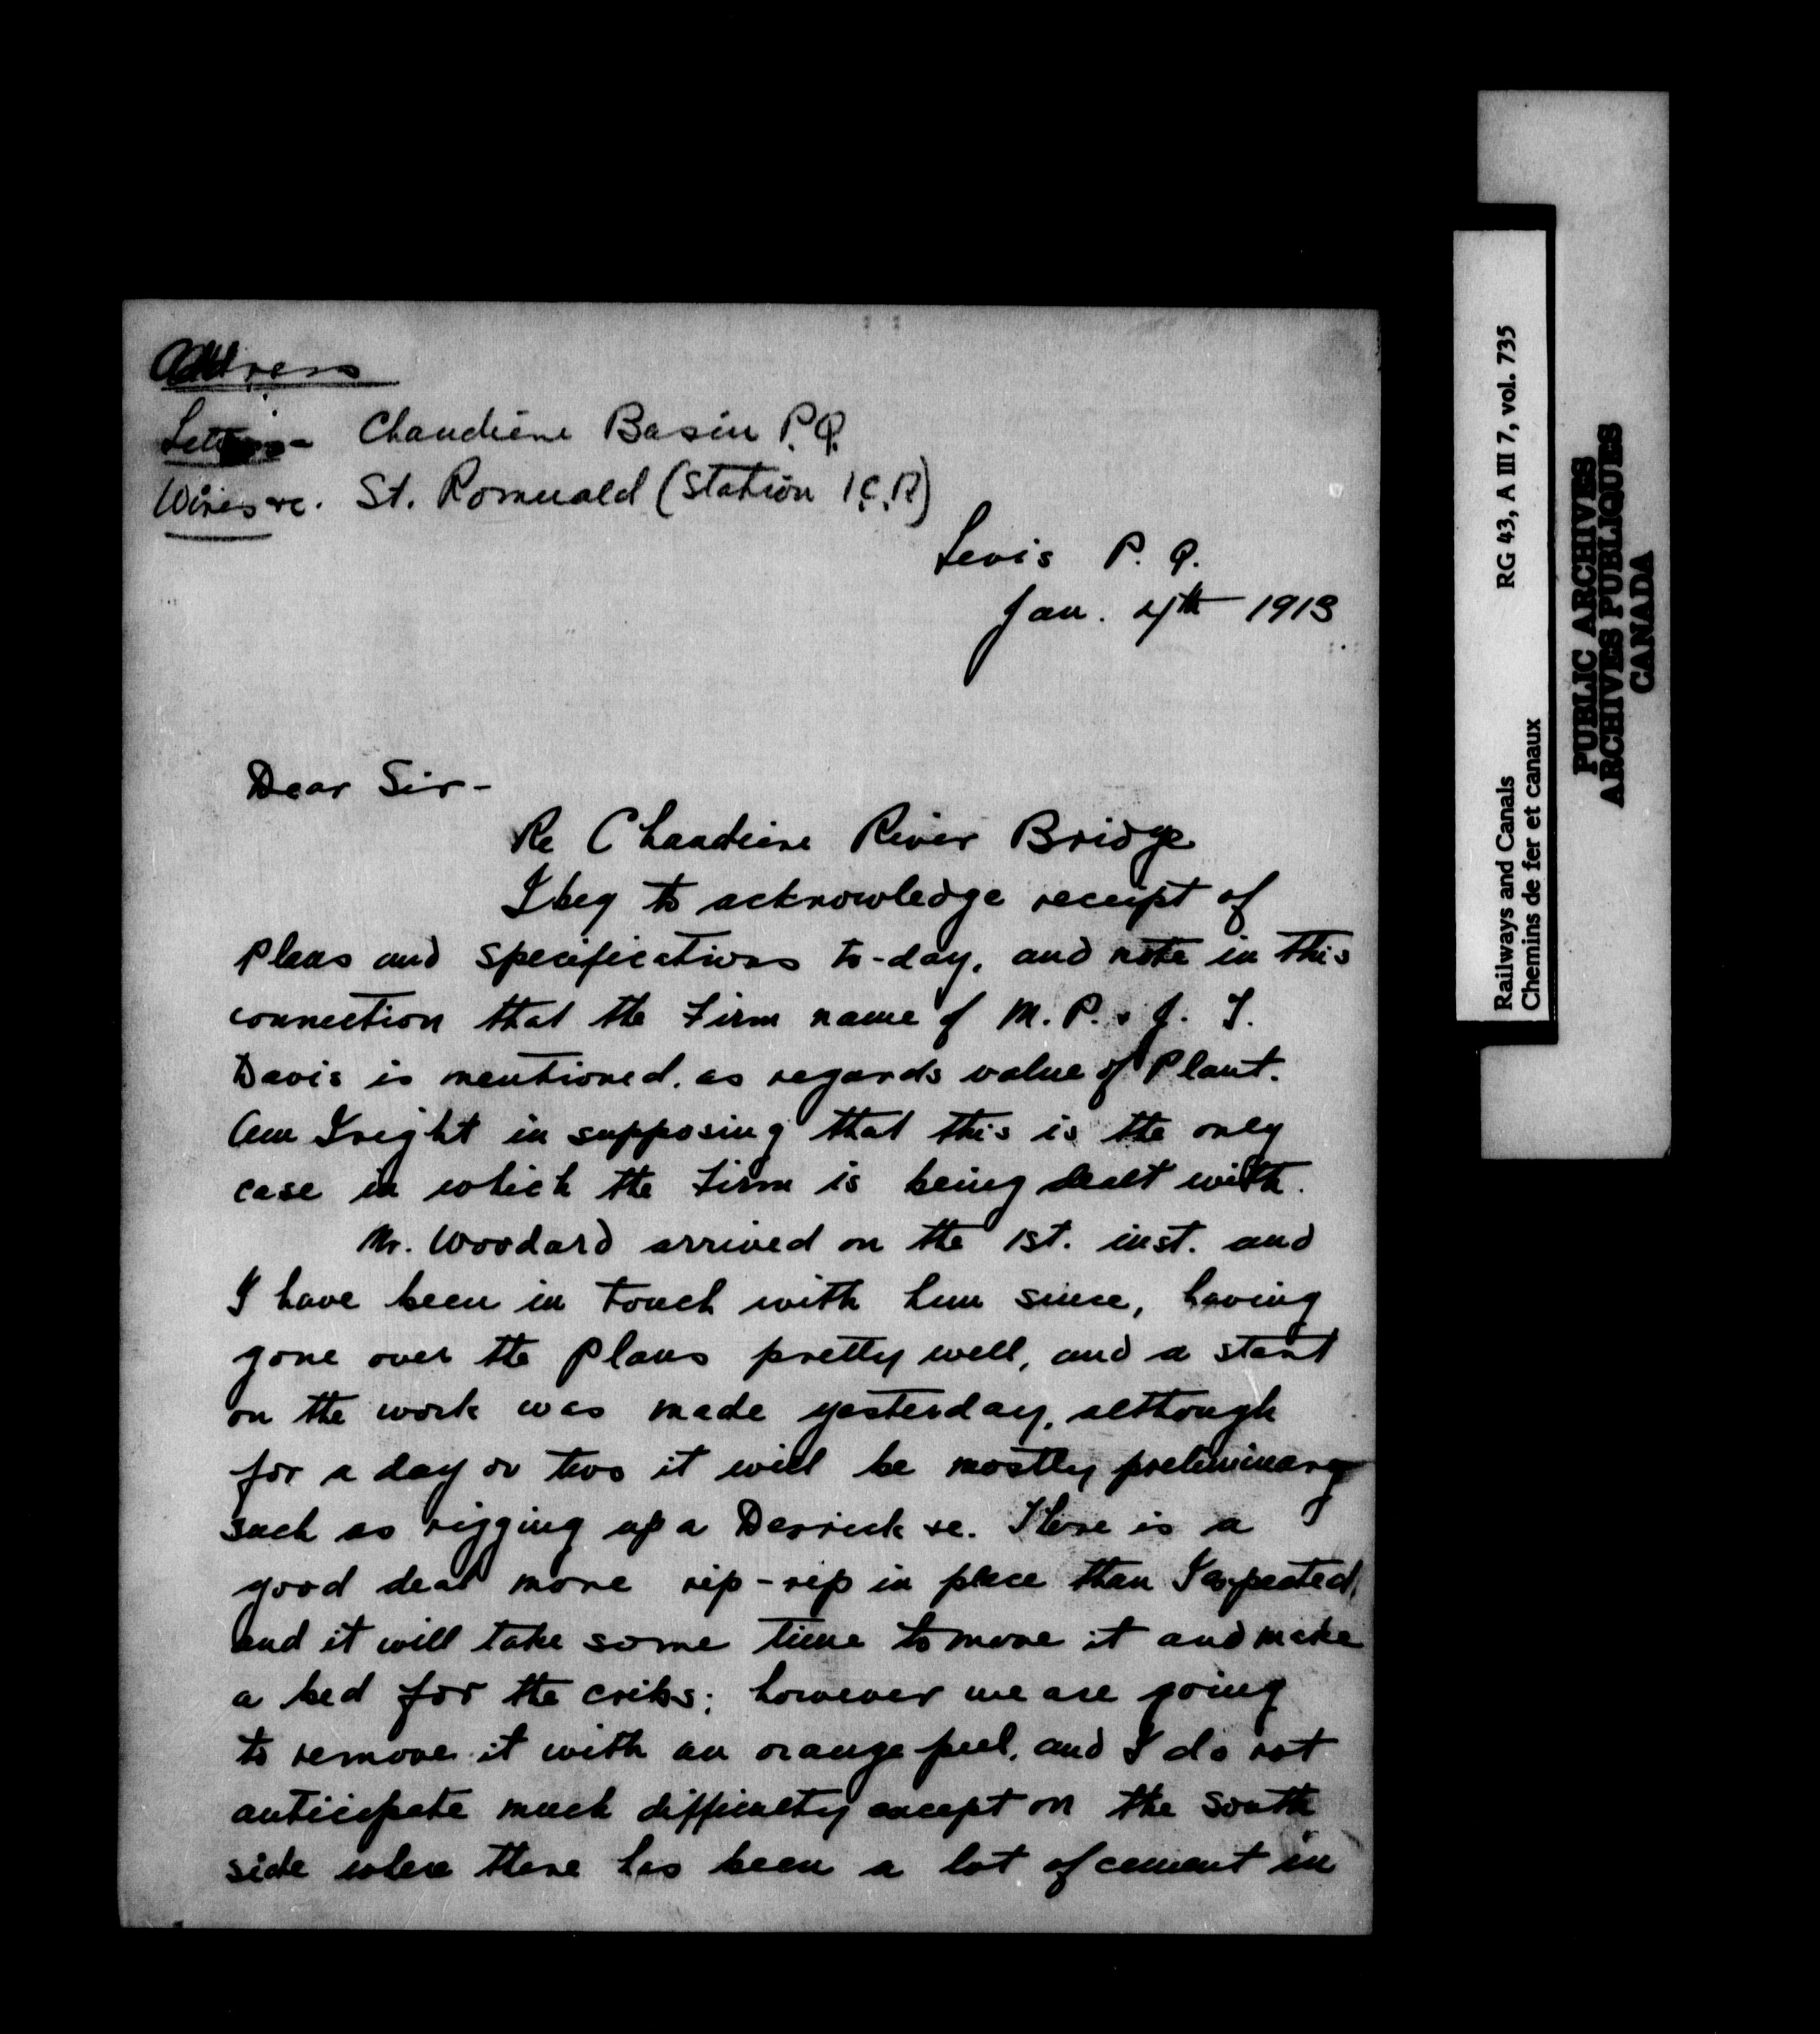 Address
Letters - Chaudiere Basin P.Q.
Wires &c. St. Romuald (Station I.C.R)
Levis P. Q.
Jan. 4th 1913
Dear Sir -
Re Chaudiere River Bridge
I beg to acknowledge receipt of
plans and specifications to-day, and note in this
connection that the firm name of M. P. & J. T.
Davis is mentioned, as regards value of Plant.
Am I right in supposing that this is the only
case in which the firm is being dealt with.
Mr. Woodard arrived on the 1st. inst. and
I have been in touch with him since, having
gone over the plans pretty well, and a start
on the work was made yesterday, although
for a day or two it will be mostly preliminary
such as rigging up a Derrick &c. There is a
good deal more rip-rip in place than I expected,
and it will take some time to move it and make
a bed for the cribs; however we are going
to remove it with an orange peel, and I do not
anticipate much difficulty except on the south
side where there has been a lot of cement in
Railways and Canals RG 43, A III 7, vol. 735
Chemins de fer et canaux
PUBLIC ARCHIVES
ARCHIVES PUBLIQUES
CANADA